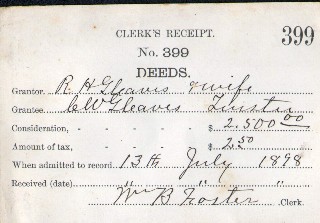 CLERK'S RECEIPT.
399
No. 399
DEEDS.
Grantor R H Gleaves & wife
Grantee C W Gleaves Trustee
Consideration, - - - - $ 2.500 00
Amount of tax, - - - - $ 2.50
When admitted to record, 13th July 1898
Received (date) " " "
Wm B Foster , Clerk.